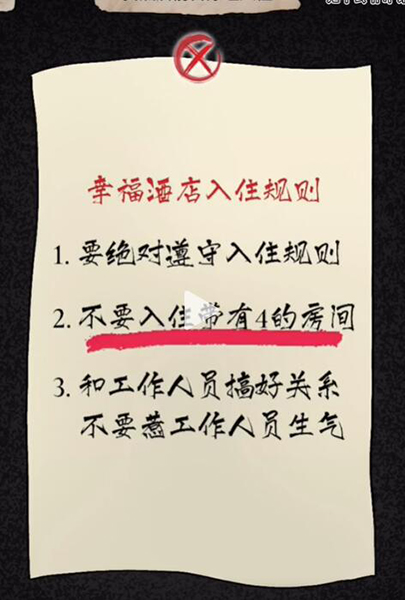 幸福酒店入住规则
1. 要绝对遵守入住规则
2. 不要入住带有4的房间
3. 和工作人员搞好关系
不要惹工作人员生气